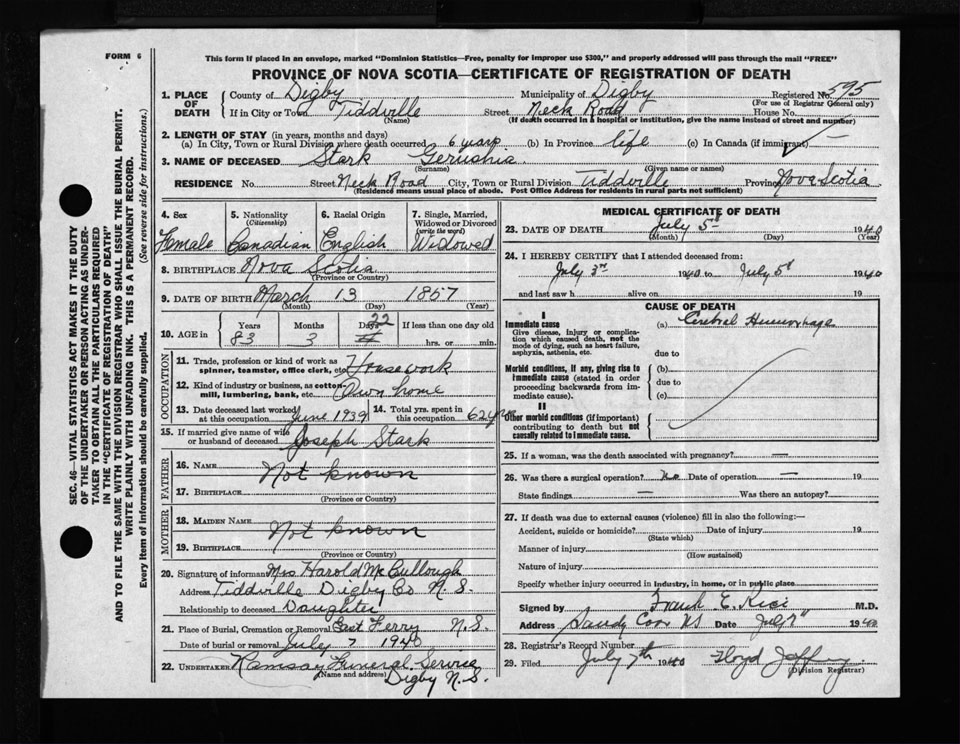 FORM 6
This form if placed in an envelope, marked "Dominion Statistics—Free, penalty for improper use $300," and properly addressed will pass through the mail "FREE"
PROVINCE OF NOVA SCOTIA—CERTIFICATE OF REGISTRATION OF DEATH
1. PLACE OF DEATH
County of Digby Municipality of Digby Registered No. 595
(For use of Registrar General only)
If in City or Town Tiddville Street Neck Road House No.
(Name) (If death occurred in a hospital or institution, give the name instead of street and number)
2. LENGTH OF STAY (in years, months and days)
(a) In City, Town or Rural Division where death occurred 6 years (b) In Province life (c) In Canada (if immigrant) —
3. NAME OF DECEASED Stark Gerushia
(Surname) (Given name or names)
RESIDENCE No. Street Neck Road City, Town or Rural Division Tiddville Province Nova Scotia
(Residence means usual place of abode. Post Office Address for residents in rural parts not sufficient)
4. Sex Female
5. Nationality (Citizenship) Canadian
6. Racial Origin English
7. Single, Married, Widowed or Divorced (write the word) Widowed
8. BIRTHPLACE Nova Scotia
(Province or Country)
9. DATE OF BIRTH March 13 1857
(Month) (Day) (Year)
10. AGE in Years 83 Months 3 Days 22 If less than one day old hrs. or min.
OCCUPATION
11. Trade, profession or kind of work as spinner, teamster, office clerk, etc. Housework
12. Kind of industry or business, as cotton-mill, lumbering, bank, etc. Own home
13. Date deceased last worked at this occupation June 1939
14. Total yrs. spent in this occupation 62 yrs
15. If married give name of wife or husband of deceased Joseph Stark
FATHER
16. NAME Not known
17. BIRTHPLACE
(Province or Country)
MOTHER
18. MAIDEN NAME Not known
19. BIRTHPLACE
(Province or Country)
20. Signature of informant Mrs Harold McCullough
Address Tiddville Digby Co N.S.
Relationship to deceased Daughter
21. Place of Burial, Cremation or Removal East Ferry N.S.
Date of burial or removal July 7 1940
22. UNDERTAKER Ramsay Funeral Service
(Name and address) Digby N.S.
MEDICAL CERTIFICATE OF DEATH
23. DATE OF DEATH July 5th 1940
(Month) (Day) (Year)
24. I HEREBY CERTIFY that I attended deceased from:
July 3rd 1940 to July 5th 1940
and last saw h alive on 19
CAUSE OF DEATH
I
Immediate cause
Give disease, injury or complication which caused death, not the mode of dying, such as heart failure, asphyxia, asthenia, etc.
(a) Cerebral Hemorrhage
due to
Morbid conditions, if any, giving rise to immediate cause (stated in order proceeding backwards from immediate cause).
(b)
due to
(c)
II
Other morbid conditions (if important) contributing to death but not causally related to immediate cause.
25. If a woman, was the death associated with pregnancy? —
26. Was there a surgical operation? No Date of operation — 19
State findings — Was there an autopsy?
27. If death was due to external causes (violence) fill in also the following:—
Accident, suicide or homicide? Date of injury 19
(State which)
Manner of injury
(How sustained)
Nature of injury
Specify whether injury occurred in industry, in home, or in public place
Signed by Frank E. Rice M.D.
Address Sandy Cove NS Date July 7 1940
28. Registrar's Record Number
29. Filed July 7th 1940 Floyd
(Division Registrar)
SEC. 46—VITAL STATISTICS ACT MAKES IT THE DUTY
OF THE UNDERTAKER OR PERSON ACTING AS UNDER-
TAKER TO OBTAIN ALL THE PARTICULARS REQUIRED
IN THE "CERTIFICATE OF REGISTRATION OF DEATH"
AND TO FILE THE SAME WITH THE DIVISION REGISTRAR WHO SHALL ISSUE THE BURIAL PERMIT.
WRITE PLAINLY WITH UNFADING INK. THIS IS A PERMANENT RECORD.
Every item of information should be carefully supplied. (See reverse side for instructions.)